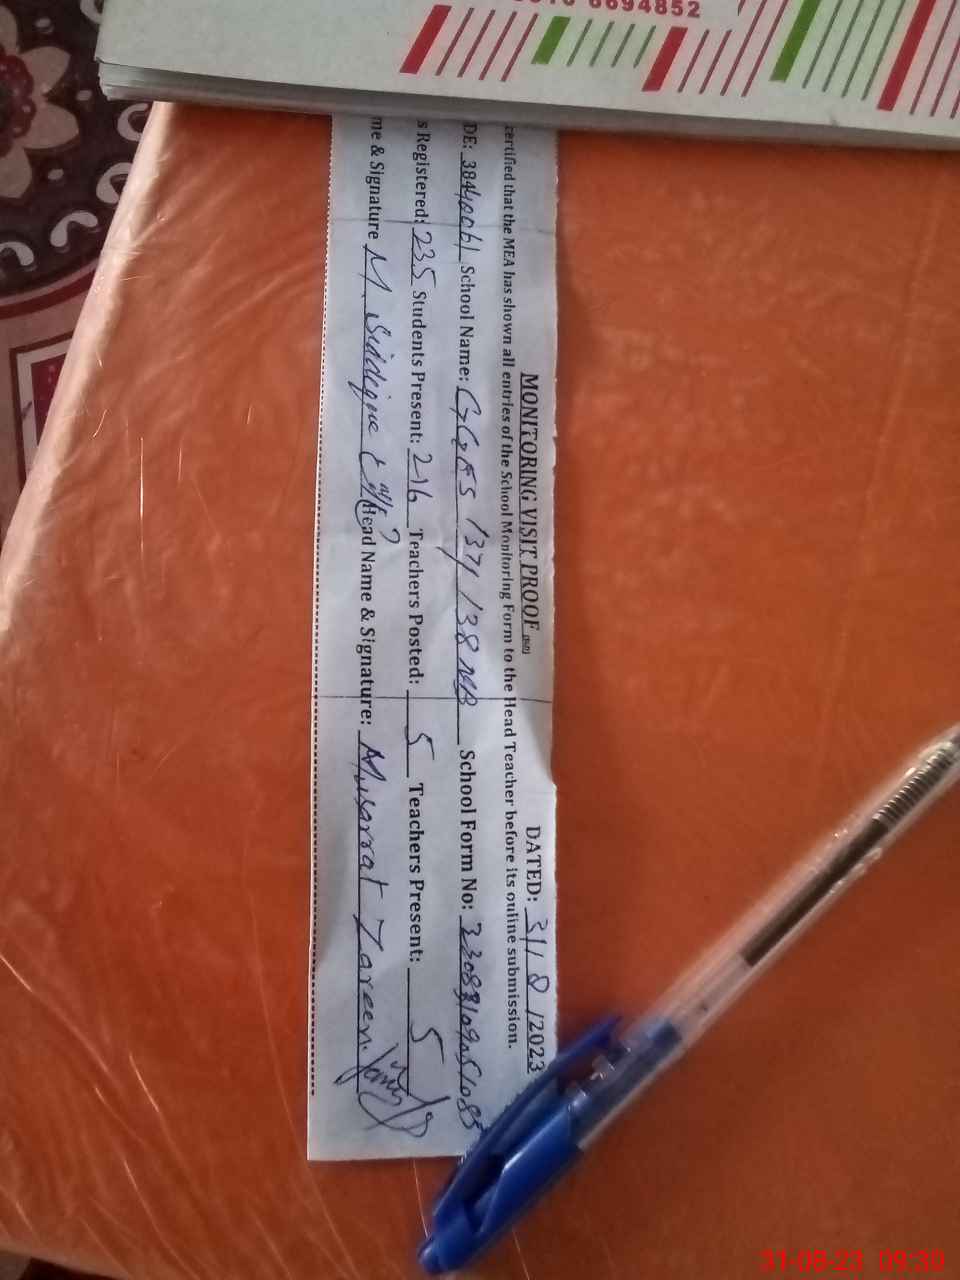 6694852
MONITORING VISIT PROOF DATED: 31/8/2023
certified that the MEA has shown all entries of the School Monitoring Form to the Head Teacher before its online submission.
DE: 38440061 School Name: GGES 137/138 MB School Form No:
s Registered: 235 Students Present: 216 Teachers Posted: 5 Teachers Present: 5
me & Signature M. Siddique Head Name & Signature: Musarrat Zareen.
31-08-23 09:30